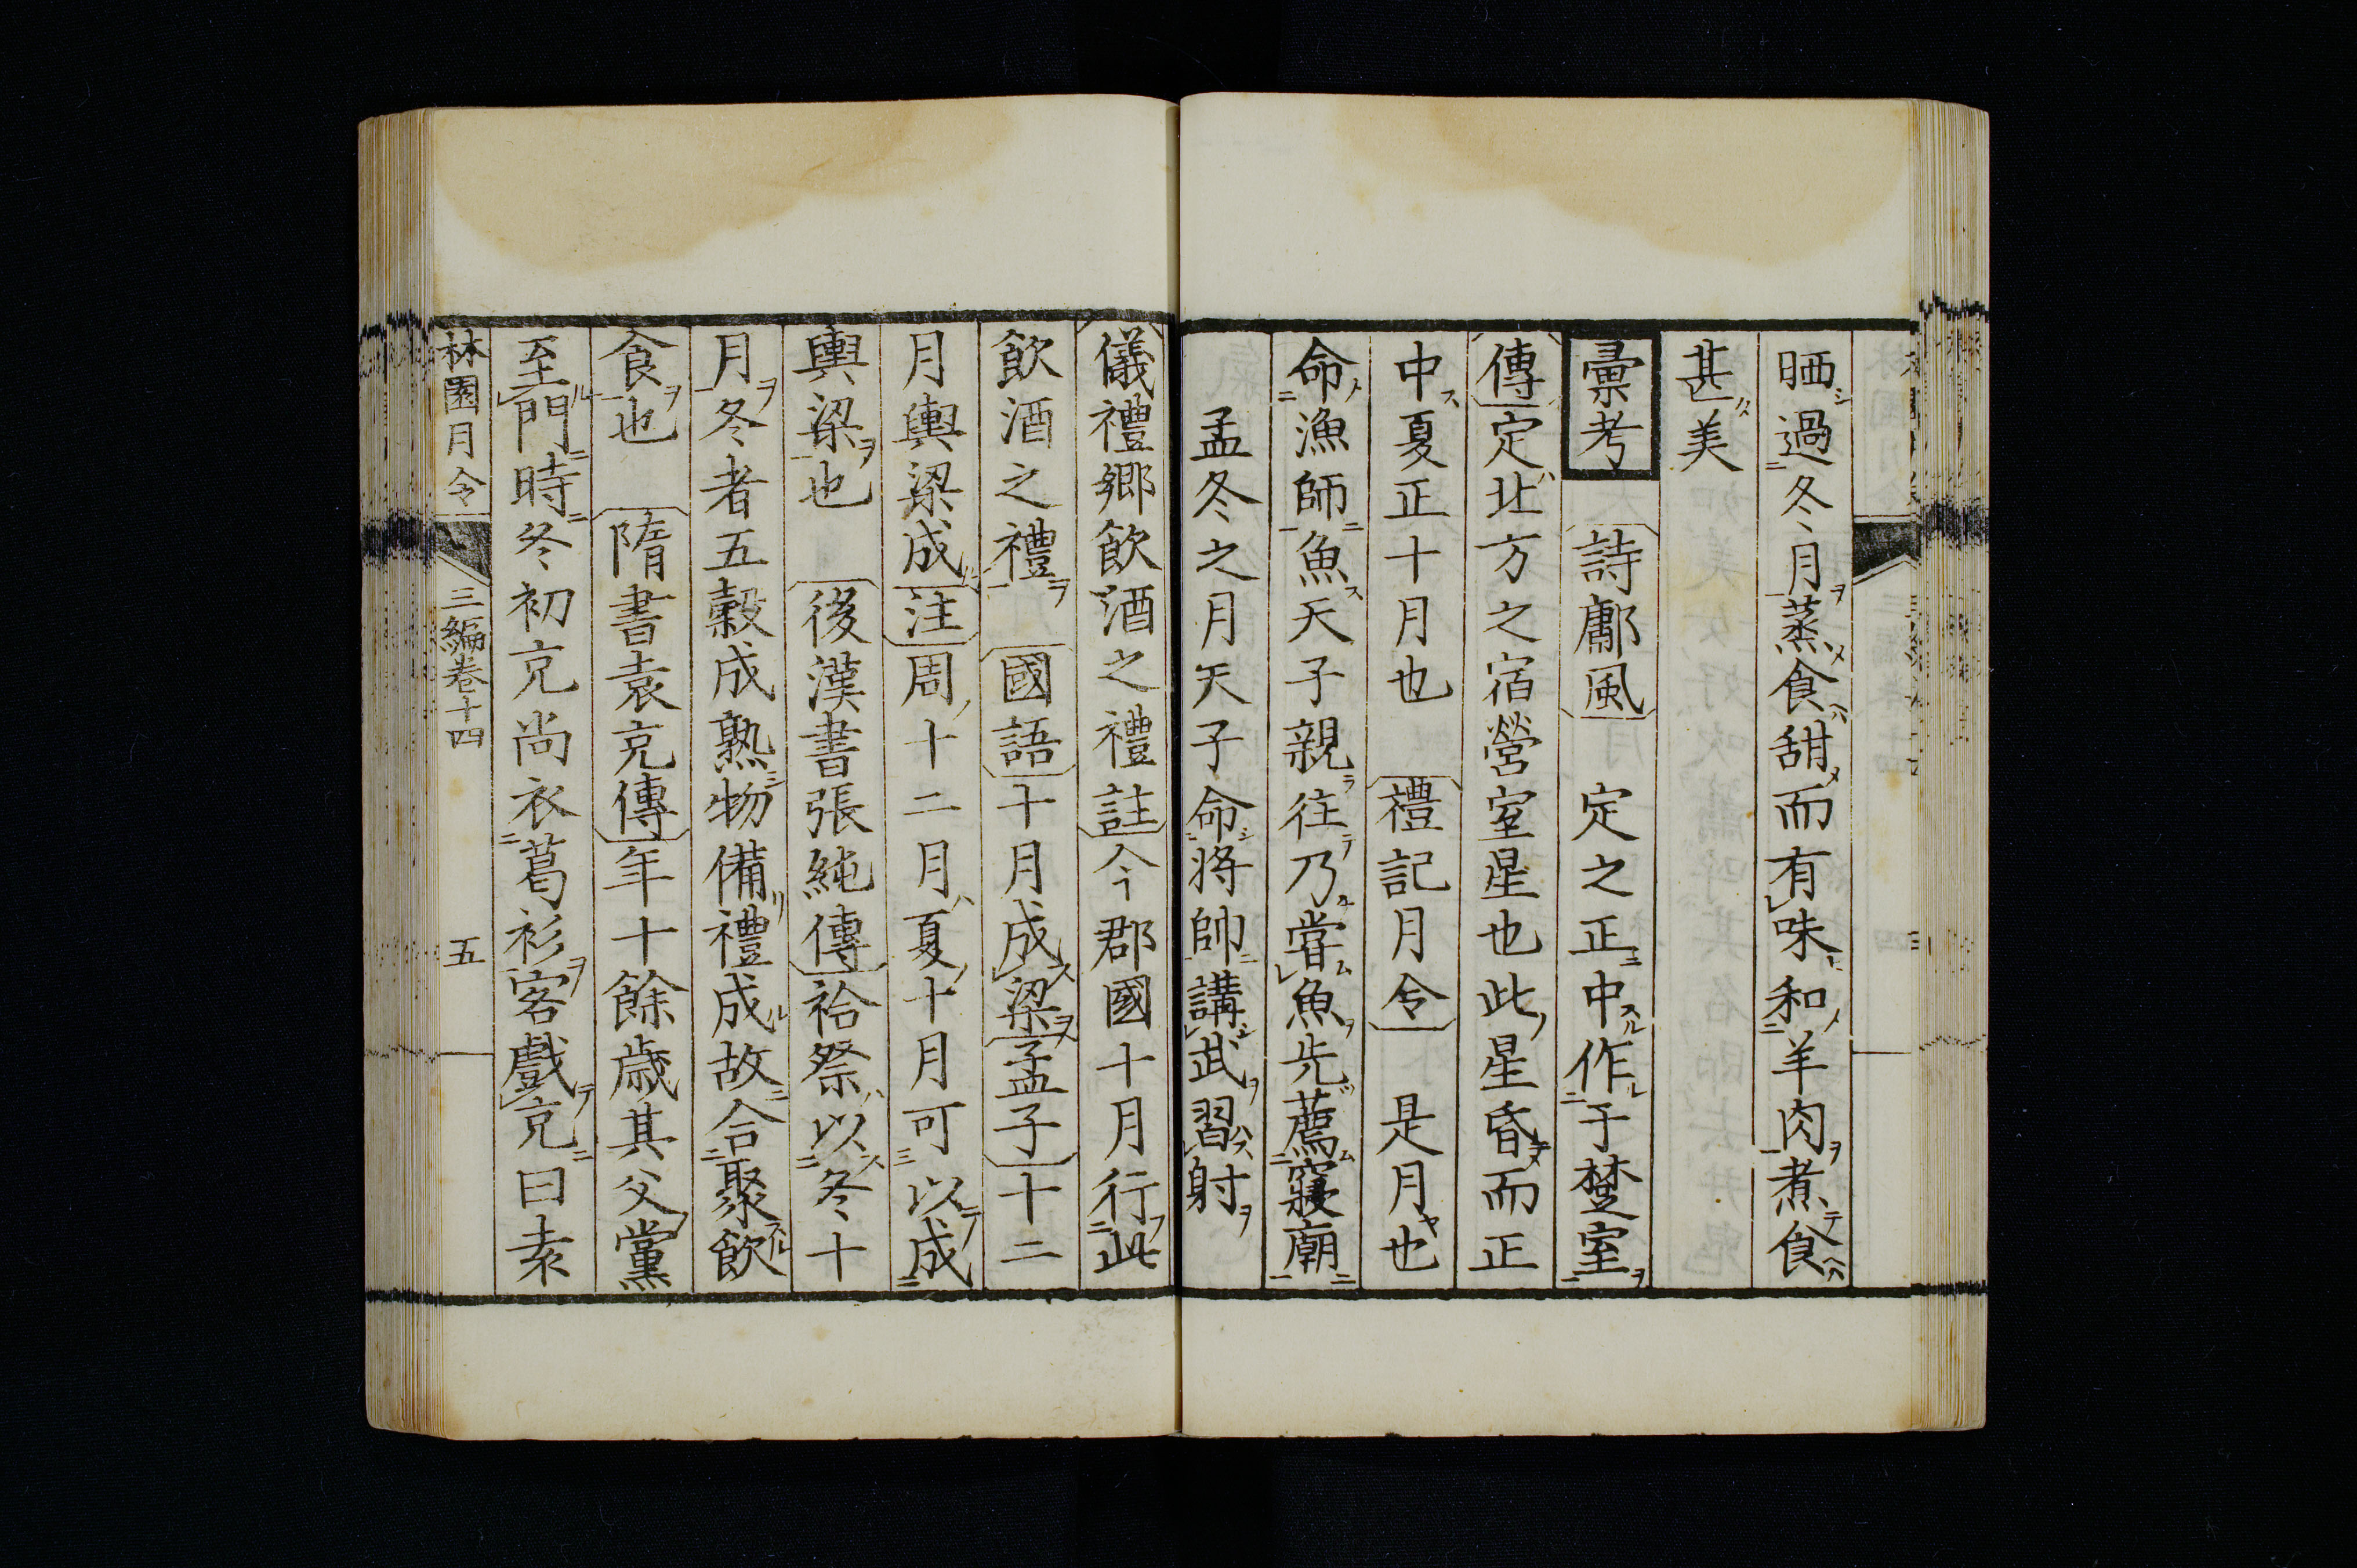 晒過冬月蒸食甜而有味和羊肉煮食
甚美
彚考 詩鄘風 定之正中作于楚室
傳定北方之宿營室星也此星昏而正
中夏正十月也 禮記月令 是月也
命漁師魚天子親往乃嘗魚先薦寢廟
孟冬之月天子命将帥講武習射
儀禮鄉飲酒之禮註今郡國十月行此
飲酒之禮 國語十月成梁孟子十二
月輿梁成注周十二月夏十月可以成
輿梁也 後漢書張純傳祫祭以冬十
月冬者五穀成熟物備禮成故合聚飲
食也 隋書袁充傳年十餘歳其父黨
至門時冬初充尚衣葛衫客戲充曰袁
林園月令 三編卷十四 五